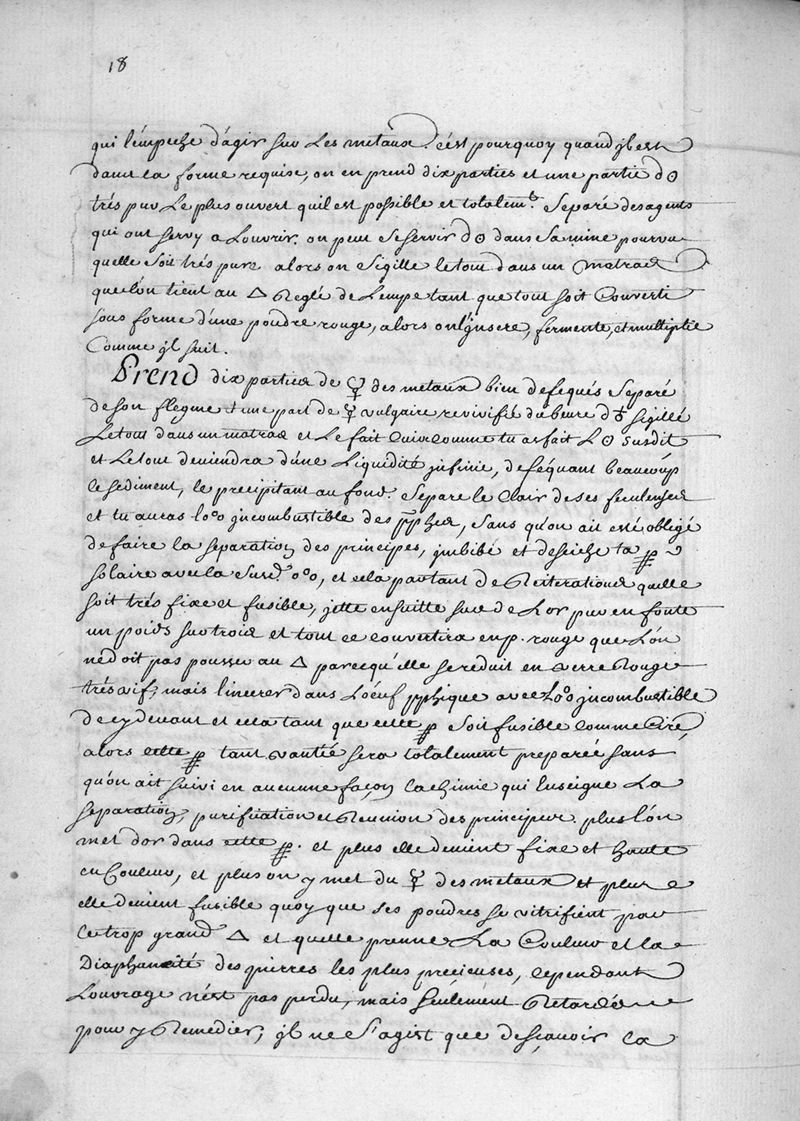 18
qui l'émpeche d'agir sur Les metaux. c'ést pourquoy quand jl est
dans La forme requise, on en prend dix parties et une partie d☉
trés pur Le plus ouvert quil est possible et totalem.t Separé des agents
qui ont servy a Louvrir. on peut Se servir d☉ dans Sa mine pourvu
quelle Soit trés pure alors on Sigille le tout dans un Matras
que lón tient au △ Reglé de Lempe tant que tout soit Converti
sous forme d'une poudre rouge, alors on l'jnsere, fermente, et multiplie
Comme jl suit.
Prend dix parties de ☿ des metaux bien defequés Separé
de son flegme et une part de ☿ vulgaire revivifié du beure d♁ sigillé
Le tout dans un matras et Le fait Cuire comme tu as fait L☉ susdit
et Le tout deviendra d'une Liquidité jnfinie, deféquant beaucoup
le sediment, le precipitant au fond. Separe le Clair de ses feculences
et tu auras l'o°o jncombustible des pphes, sans qu'on ait eté obligé
de faire la separation des principes, jmbibé et deseiche ta p
solaire avec la Susd. o°o, et cela par tant de Reiterations quelle
soit trés fixe et fusible, jette ensuitte sur de L'or pur en fonte
un poids sur trois et tout ce convertira en p. rouge que L'ón
ne doit pas pousser au △ parcequ'elle se reduit en verre Rouge
trés vif, mais l'incerer dans L'oeuf pphique avec L'o°o jncombustible
de cy devant et cela tant que cette p Soit fusible comme Cire,
alors cette p tant vantée sera totalement preparée sans
qu'on ait suivi en aucunne façon La chimie qui Enseigne La
separation, purification et Reunion des principes. plus L'ón
met d'or dans cette p. et plus elle devient fixe et haute
en Couleur, et plus on y met du ☿ des metaux et plus
elle devient fusible quoy que ses poudres se vitrifient par
Le trop grand △ et quelle prenne La Couleur et la
Diaphaneité des pierres les plus precieuses, cependant
L'ouvrage n'ést pas perdu, mais seulement Retardé
pour y Remedier, jl ne S'agist que de sçavoir la